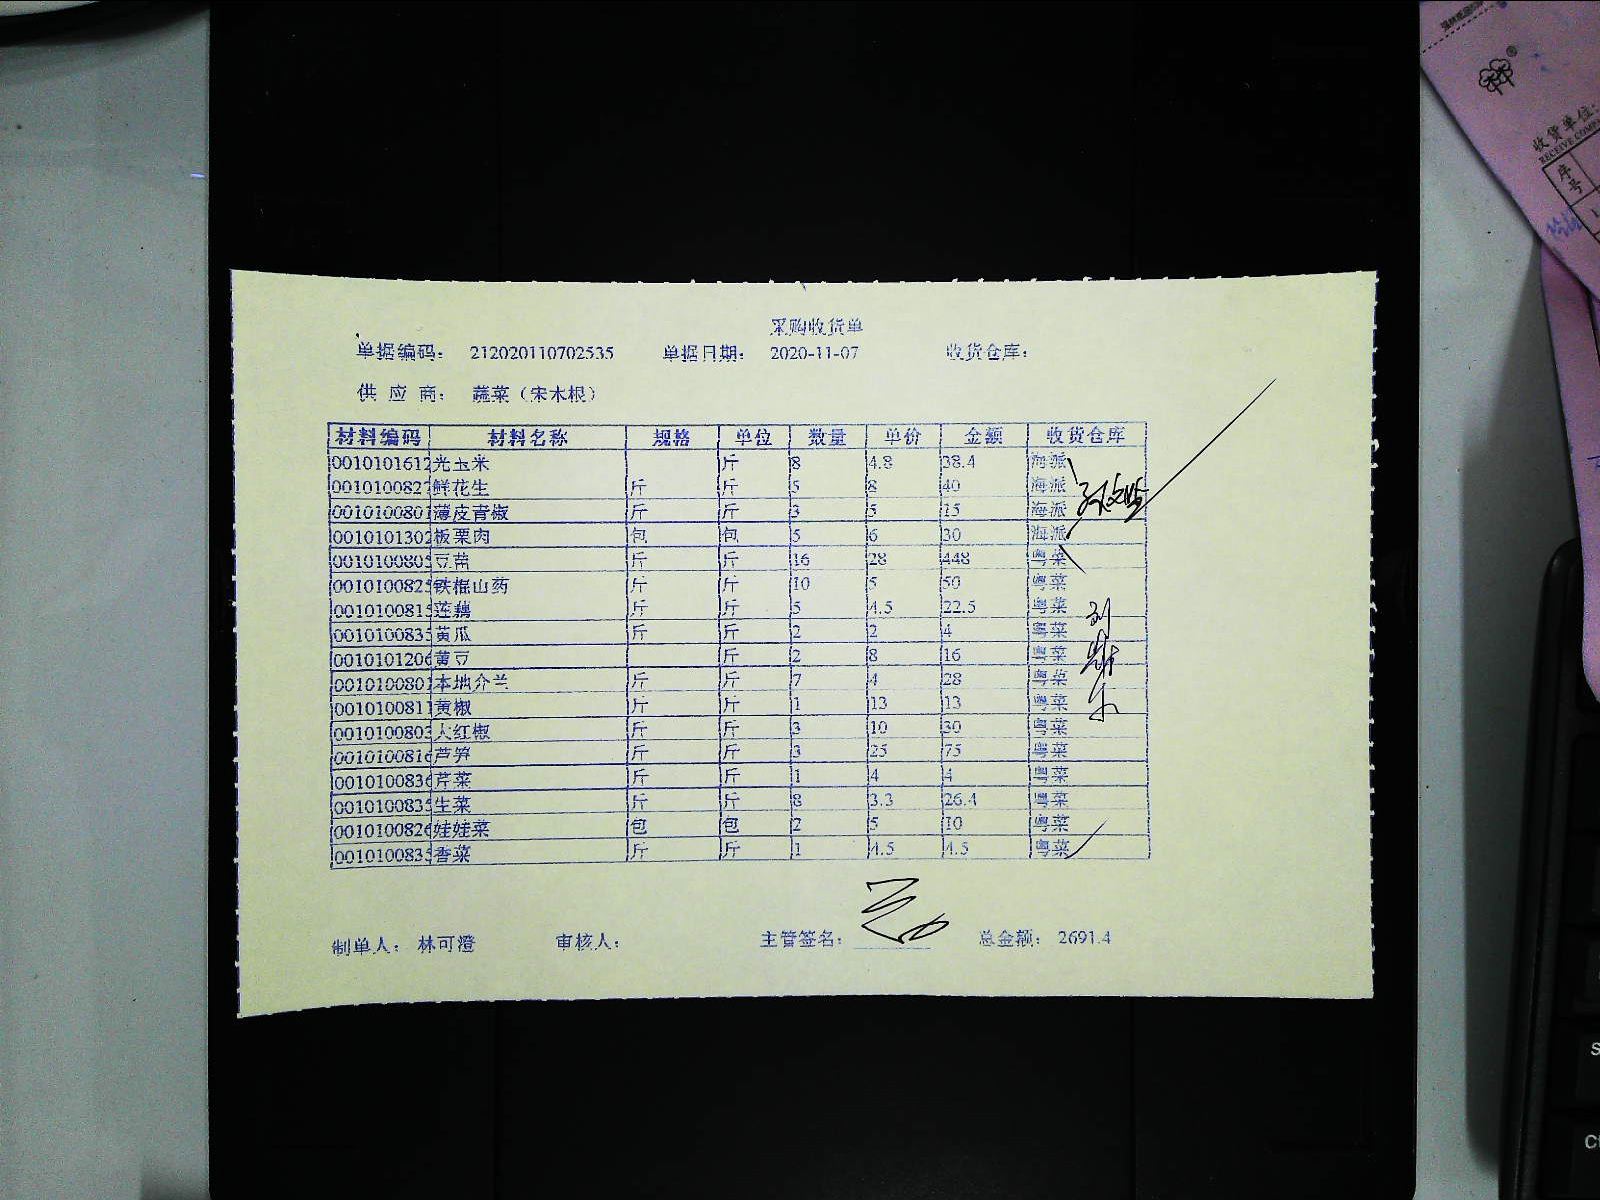 采购收货单
单据编码： 212020110702535 单据日期： 2020-11-07 收货仓库：
供 应 商： 蔬菜（宋木根）
材料编码 材料名称 规格 单位 数量 单价 金额 收货仓库
0010101612 光玉米 斤 8 4.8 38.4 海派
001010082 鲜花生 斤 斤 5 8 40 海派
001010080 薄皮青椒 斤 斤 3 5 15 海派
0010101302 板栗肉 包 包 5 6 30 海派
001010080 豆苗 斤 斤 16 28 448 粤菜
001010082 铁棍山药 斤 斤 10 5 50 粤菜
001010081 莲藕 斤 斤 5 4.5 22.5 粤菜
001010083 黄瓜 斤 斤 2 2 4 粤菜
001010120 黄豆 斤 2 8 16 粤菜
001010080 本地介兰 斤 斤 7 4 28 粤菜
001010081 黄椒 斤 斤 1 13 13 粤菜
001010080 大红椒 斤 斤 3 10 30 粤菜
001010081 芦笋 斤 斤 3 25 75 粤菜
001010083 芹菜 斤 斤 1 4 4 粤菜
001010083 生菜 斤 斤 8 3.3 26.4 粤菜
001010082 娃娃菜 包 包 2 5 10 粤菜
001010083 香菜 斤 斤 1 4.5 4.5 粤菜
制单人： 林可澄 审核人： 主管签名： 总金额： 2691.4
收货单位:
RECEIVE COMP
序号